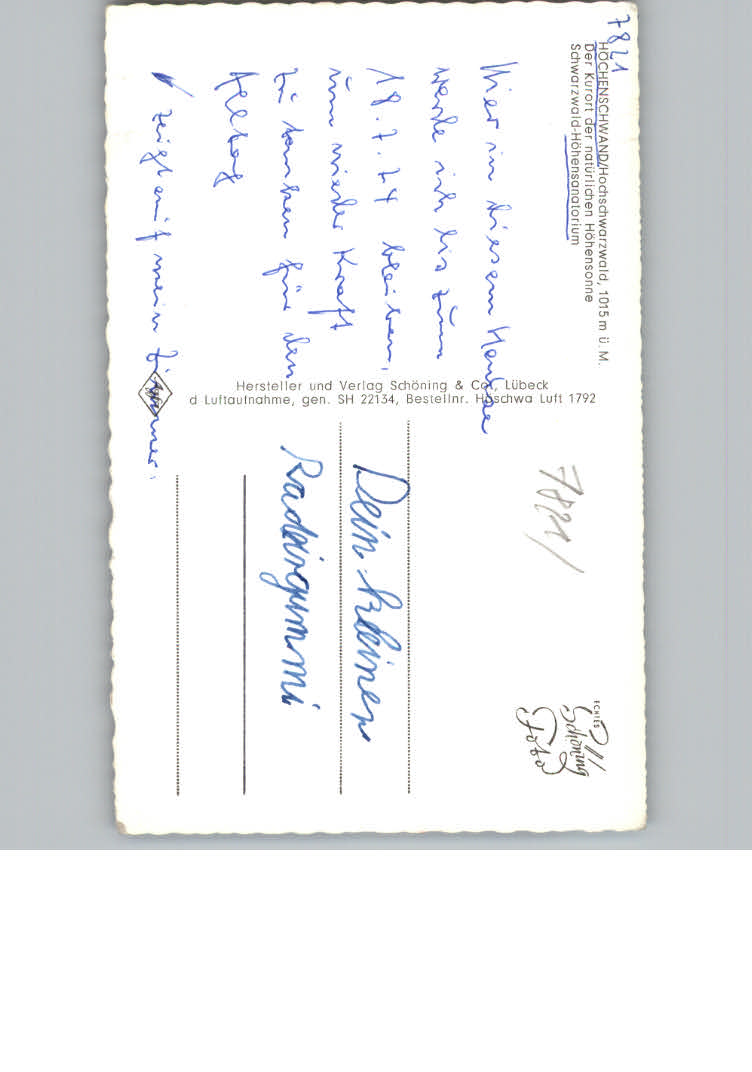 7821
HÖCHENSCHWAND/Hochschwarzwald, 1015 m ü. M.
Der Kurort der natürlichen Höhensonne
Schwarzwald-Höhensanatorium
Hier in diesem Hause
werde ich bis zum
18.7.74 bleiben,
um wieder Kraft
zu tanken für den
Alltag
zeigt auf mein Zimmer.
Hersteller und Verlag Schöning & Co., Lübeck
d Luftaufnahme, gen. SH 22134, Bestellnr. Höschwa Luft 1792
7821
ECHTES
Schöning
Foto
Dein kleiner
Radiergummi